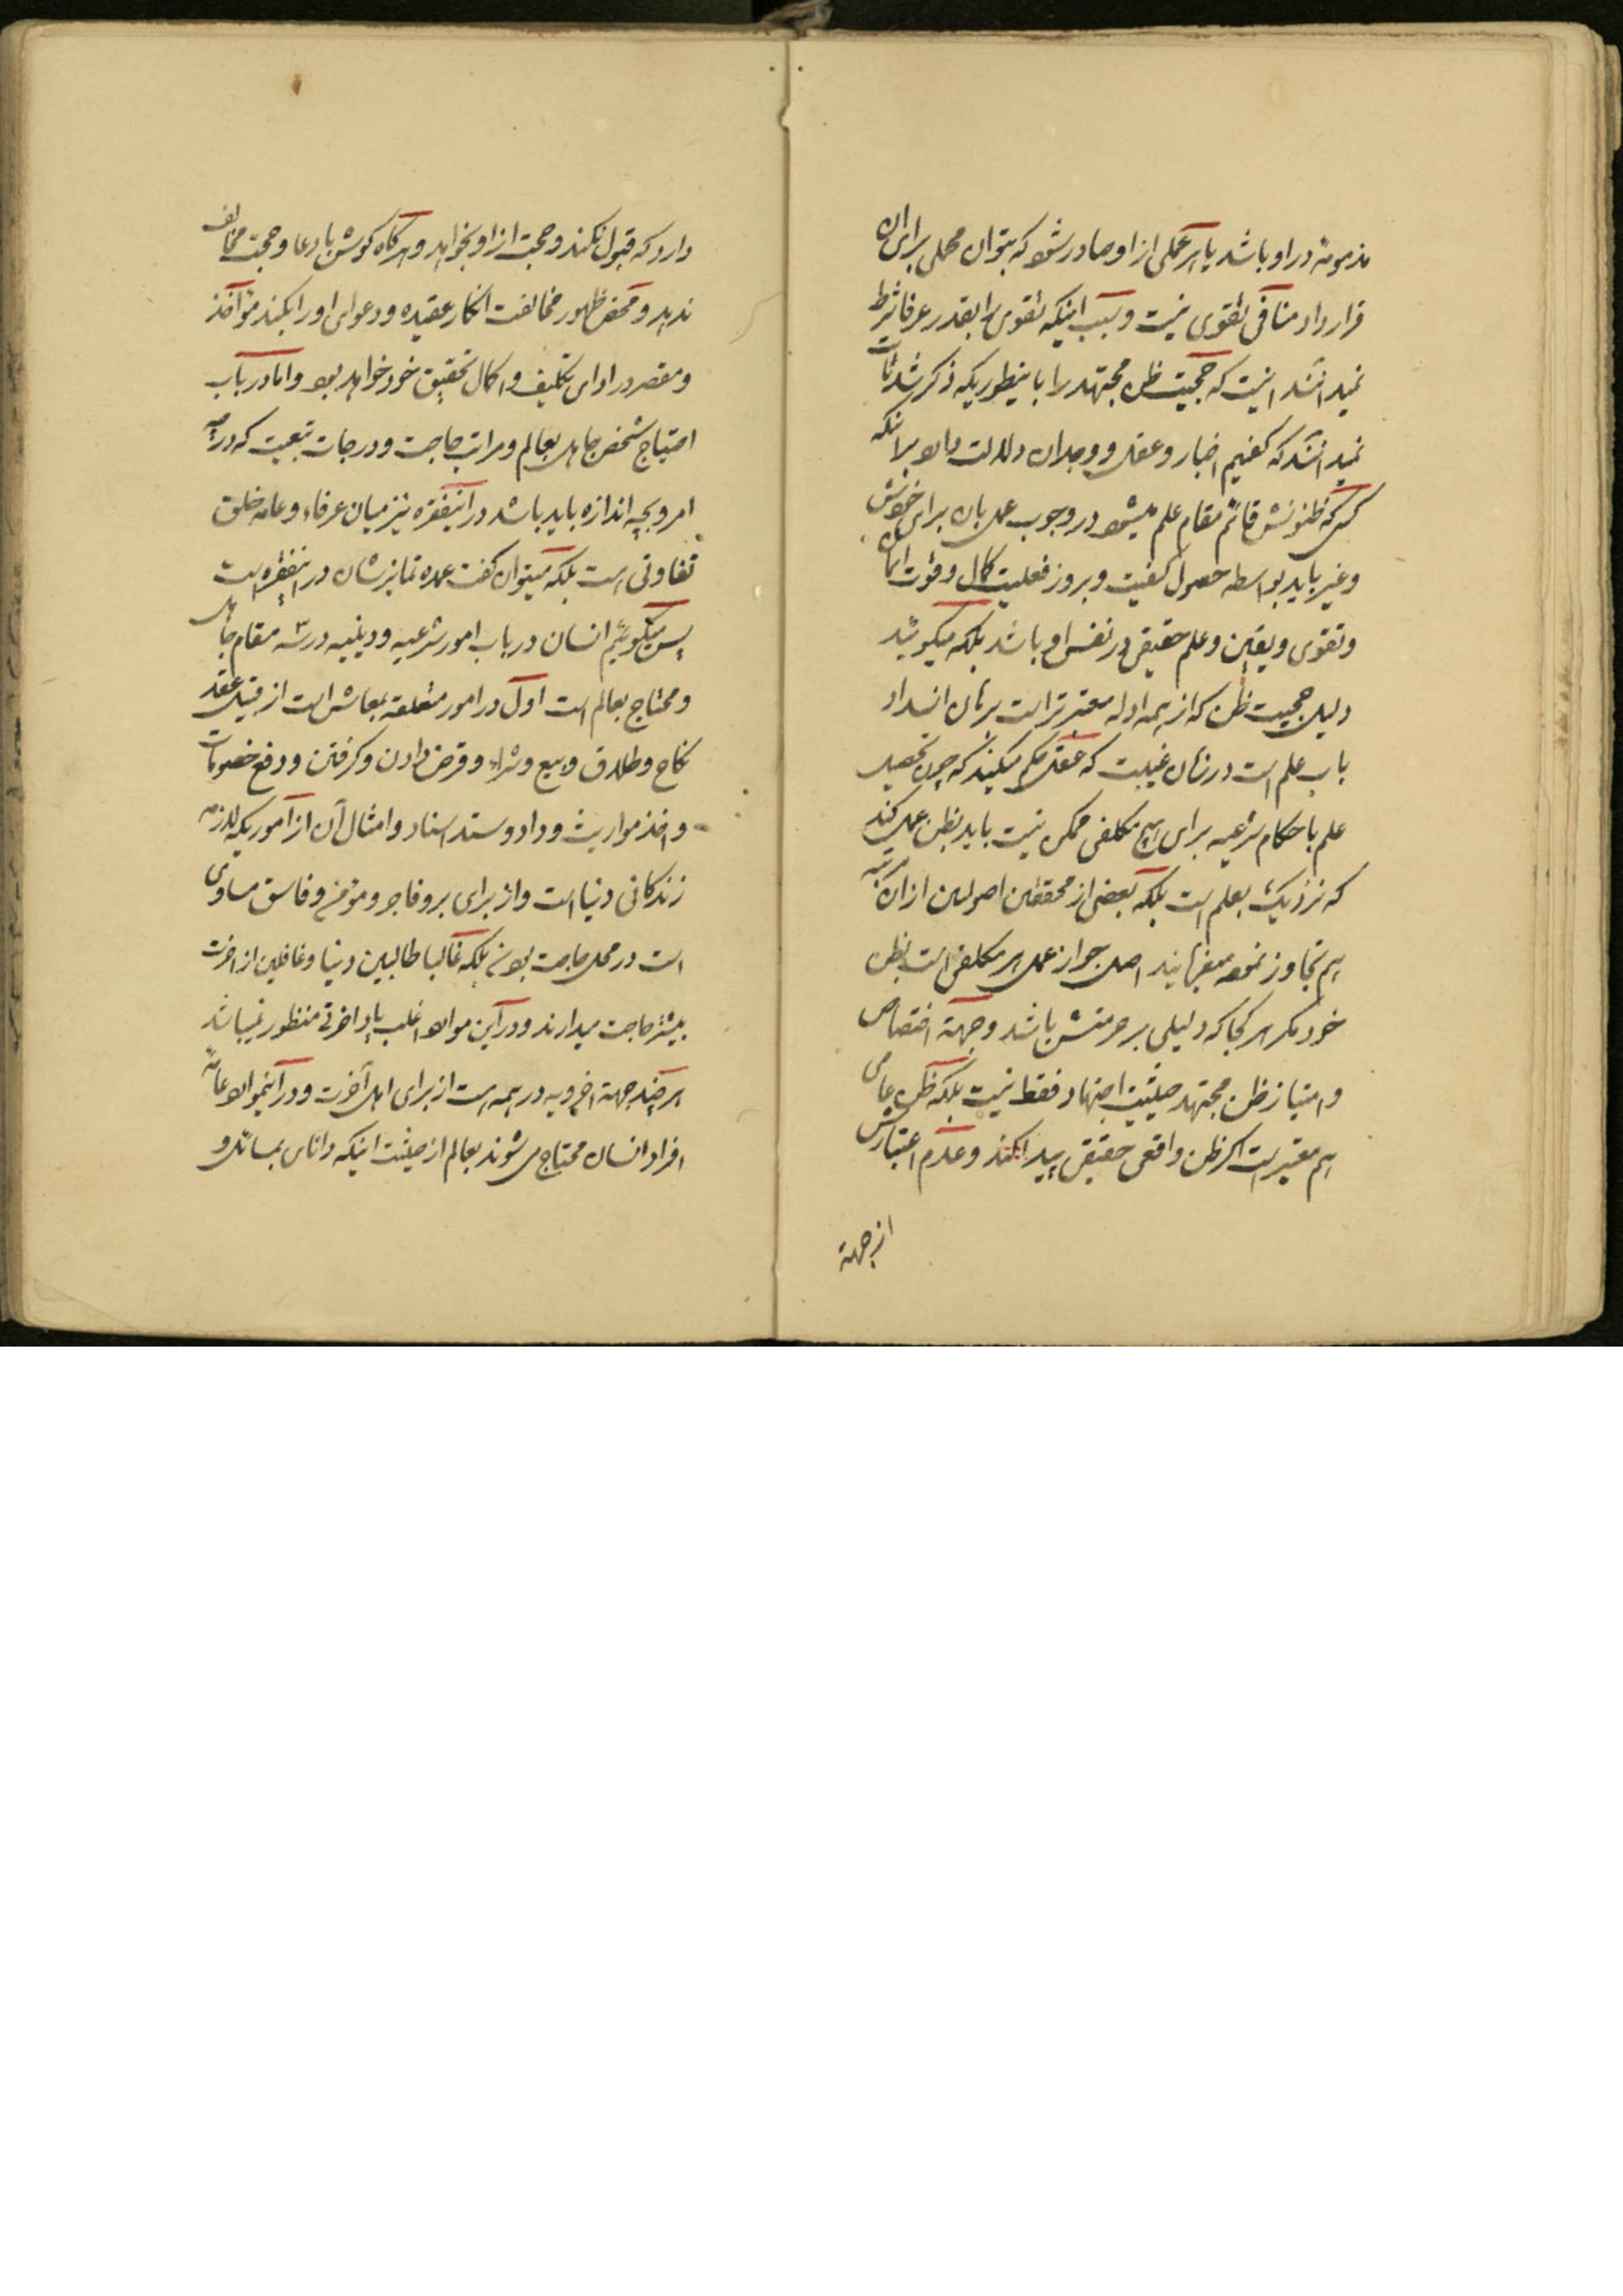 مذمومهٔ در او باشد یا هر عملی از او صادر شود که بتوان محملی برای ان
قرار داد منافی تقوی نیست و سبب اینکه تقوی را بقدر عرفا شرط
نمیدانند اینست که حجیت ظن مجتهد را باینطوریکه ذکر شد ثابت
نمیدانند که گفتیم اخبار و عقل و وجدان دلالت دارد برانکه
کسی که ظنونش قائم مقام علم میشود در وجوب عمل بان برای خودش
و غیر باید بواسطه حصول کیفیت و بروز فعلیت کمال و قوت ایمان
و تقوی و یقین و علم حقیقی در نفس او باشد بلکه میگویند
دلیل حجیت ظن که از همه ادله معتبرتر است برهان انسداد
باب علم است در زمان غیبت که عقل حکم میکند که چون تحصیل
علم باحکام شرعیه برای هیچ مکلفی ممکن نیست باید بظن عمل کند
که نزدیک بعلم است بلکه بعضی از محققین اصولیین از ان مرتبه
هم تجاوز نموده میفرمایند اصل جواز عمل هر مکلفی است بظن
خود مگر هر کجا که دلیلی بر حرمتش باشد و جهة اختصاص
و امتیاز ظن مجتهد حیثیت اجتهاد فقط نیست بلکه ظن عامی
هم معتبر است اگر ظن واقعی حقیقی پیدا کند و عدم اعتبارش
از جهة
دارد که قبول نکند و حجت از او بخواهد و هرگاه گوش بادعا و حجت مخالف
ندهد و محض ظهور مخالفت انکار عقیده و دعوای او را بکند مؤاخذ
و مقصر در ادای تکلیف و اکمال تحقیق خود خواهد بود و اما در باب
احتیاج شخص جاهل بعالم و مراتب حاجت و درجات تبعیت که در چه
امر و بچه اندازه باید باشد در اینفقره نیز میان عرفاء و عامه خلق
تفاوتی است بلکه میتوان گفت عمده تمایزشان در اینفقره است
پس میگوئیم انسان در باب امور شرعیه و دینیه در سه مقام جاهل
و محتاج بعالم است اول در امور متعلقه بمعاش است از قبیل عقد
نکاح و طلاق و بیع و شراء و قرض دادن و گرفتن و دفع خصومات
و اخذ مواریث و داد و ستد اسناد و امثال آن از اموریکه لازمه
زندگانی دنیا است و از برای بر و فاجر و مؤمن و فاسق مساوی
است در محل حاجت بودن بلکه غالبا طالبین دنیا و غافلین از اخرت
بیشتر حاجت میدارند و در این موارد اغلب یاد اخرتی منظور نمیباشد
هر چند جهة اخرویه در همه است از برای اهل آخرت و در اینموارد عامهٔ
افراد انسان محتاج می شوند بعالم از حیثیت اینکه دانای بمسائل و